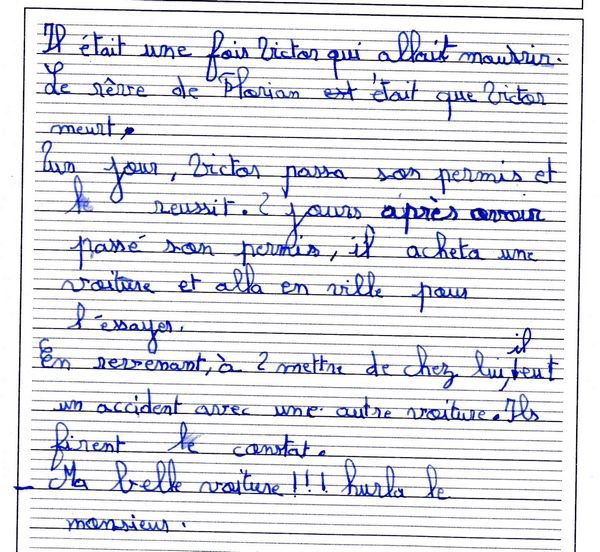 Il était une fois Victor qui allait mourrir.
Le rêve de Florian est était que Victor
meurt.
Un jour, Victor passa son permis et
le reussit. 2 jours après avoir
passé son permis, il acheta une
voiture et alla en ville pour
l'éssayer.
En revenant, à 2 mettre de chez lui, il eut
un accident avec une autre voiture. Ils
firent le constat.
- Ma belle voiture!!! hurla le
monsieur.